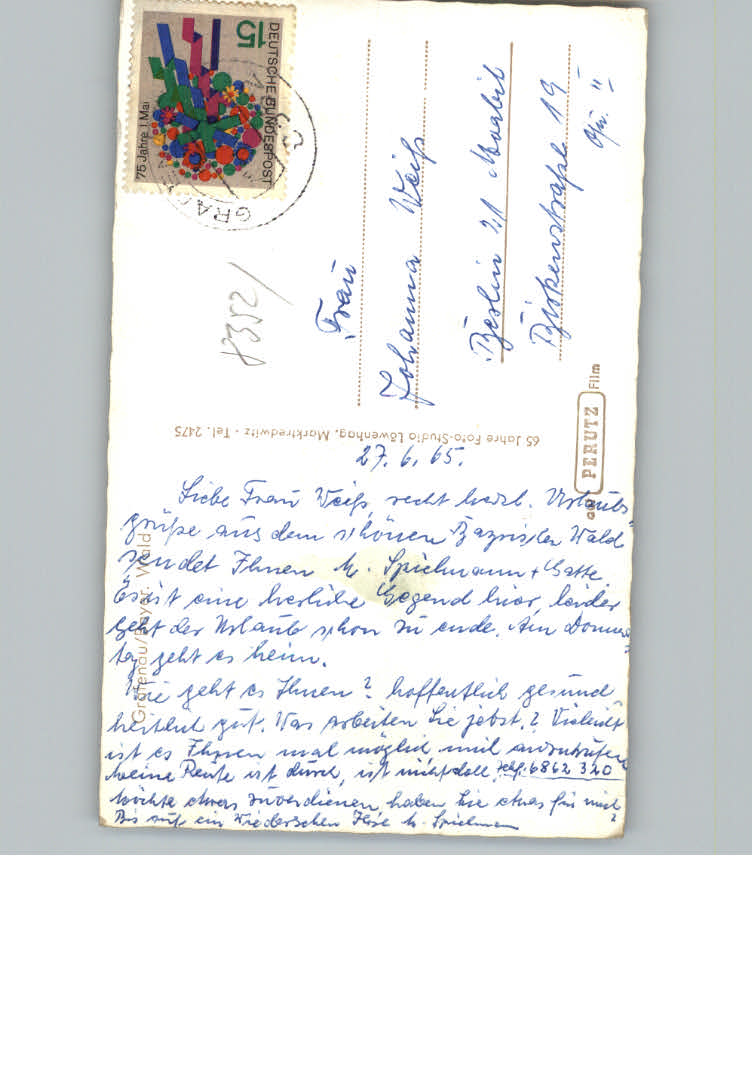 DEUTSCHE BUNDESPOST
15
75 Jahre 1. Mai
GRAFENAU
8352/
Frau
Johanna Weiß
Berlin 21 Moabit
Birkenstraße 19
65 Jahre Foto-Studio Löwenhag, Marktredwitz - Tel. 2475
auf PERUTZ Film
Grafenau/Bayer. Wald
27.6.65.
Liebe Frau Weiß, recht herzl. Urlaubs-
grüße aus dem schönen Bayrischen Wald
sendet Ihnen M. Spielmann + Gatte.
Es ist eine herliche Gegend hier, leider
geht der Urlaub schon zu ende. Am Donners-
tag geht es heim.
Wie geht es Ihnen? hoffentlich gesund-
heitlich gut. Was arbeiten Sie jetzt.? Vieleicht
ist es Ihnen mal möglich mich anzurufen
meine Rente ist durch, ist nicht doll, Telf. 6862 320
möchte etwas zuverdienen, haben Sie etwas für mich?
Bis auf ein Wiedersehen Ihre M. Spielmann